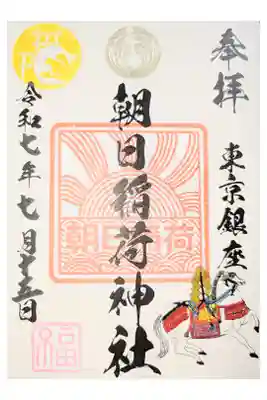 奉拝
東京銀座
朝日稲荷神社
朝日稲荷
令和七年七月十五日
福